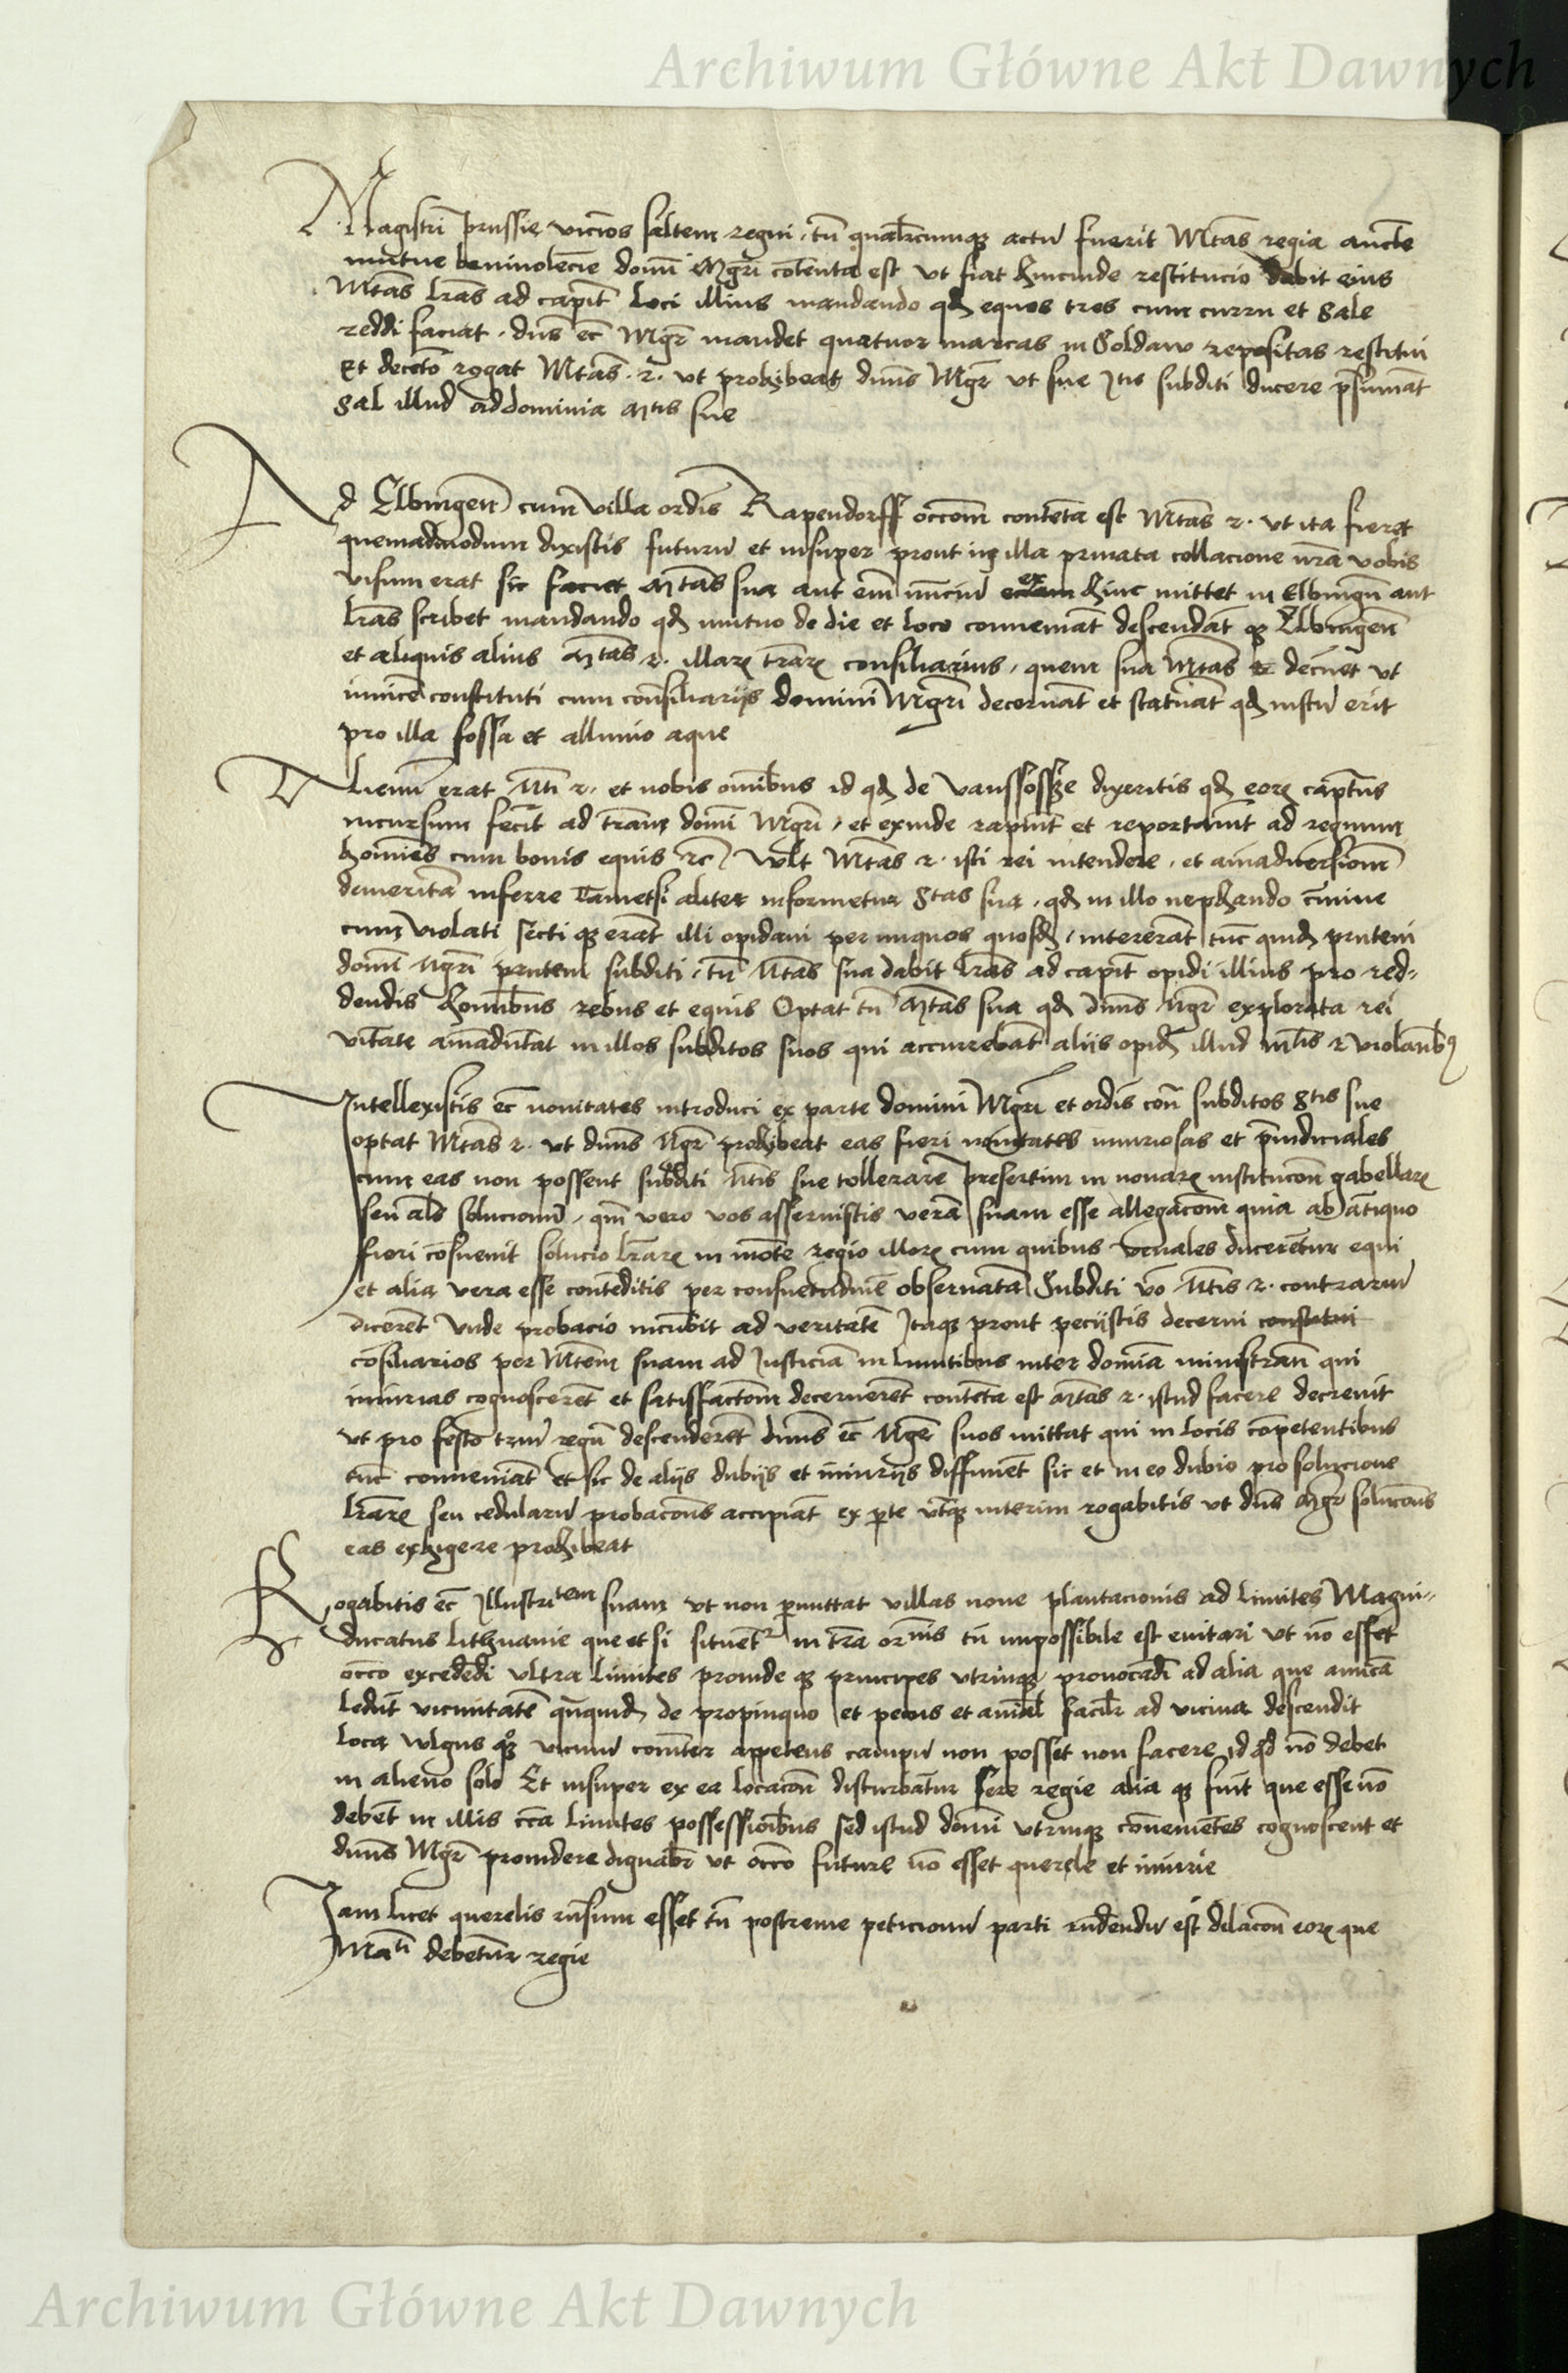 Archiwum Główne Akt Dawnych
Magistri prussie vicinos saltem regni, tn̄ qualr̄cumqȝ actū fuerit Mtas regia
mutue beniuolēcie domī Mgrī cōtenta est vt fiat hincinde restitucio dabit eius
Mtas lrās ad capit̄ loci illius mandando qd equos tres cum curru et sale
reddi faciat, dns ec̄ Mgr̄ mandet quatuor marcas in Soldaw repositas restitui
Et decēto rogat Mtas r. vt prohibeat dnus Mgr̄ vt sue subditi ducere p̄sumāt
Sal illud ad dominia Mtis sue
Ad Elbingen̄ cum villa ordīs Rapendorff occōm contēta est Mtas r. vt ita fieret
quemadmodum dixistis futurū et insuper prout in illa priuata collacione nr̄a vobis
visum erat sic faciet Mtas sua aut em̄ nunciū ex hinc mittet in Elbingn̄ aut
lrās scribet mandando qd mutuo de die et loco conueniāt descendāt qȝ Elbingen̄
et aliquis alius Mtas r. illarꝫ trarꝫ consiliarius, quem sua Mtas decn̄et vt
inuicē constituti cum consiliarijs domini Mgrī decernāt et statuāt qd iustū erit
pro illa fossa et alluuio aque
Alienū erat Mti r. et nobis omībus id qd de Vanssossze dixeritis qd eorꝫ captus
incursum fecit ad trām domī Mgrī, et exinde rapiūt et reportauīt ad regnum
hoīnes cum bonis equis rc̄ / Vult Mtas r. isti rei intendere, et aīaduersionē
demeritā inferre Tametsi aliter informetur Stas sua, qd in illo nephando crīmine
cum violati secti qȝ erāt illi opidani per iniquos quosd, intererāt tūc quid pruteni
domī Mgrī pruteni subditi, tn̄ Mtas sua dabit lrās ad capit̄ opidi illius pro red-
dendis hoīnbus rebus et equis Optat tn̄ Mtas sua qd dnus Mgr̄ explorata rei
vītate aīaduītat in illos subditos suos qui accurrebāt alijs opid illud Mtis r violantibꝯ
Intellexistis ec̄ nouitates introduci ex parte domini Mgrī et ordīs con̄ subditos Stis sue
optat Mtas r. vt dnus Mgr̄ prohibeat eas fieri nouitates iniuriosas et p̄iudiciales
cum eas non possent subditi Mtis sue tollerare presertim in nouarꝫ institucōn gabellarꝫ
seu alr̄ solucionū, qm̄ vero vos asseruistis verā suam esse allegacōm quia ab ātiquo
fieri cōsueuit solucio lrarꝫ in mōte regio illorꝫ cum quibus venales ducerētur equi
et alia vera esse contēditis per consuetudinē obseruatā Subditi vō Mtis r. contrariū
dicerēt Vnde probacio incūbit ad veritatē Itaqȝ prout pecijstis decerni constitui
cōsiliarios per Mtem suam ad Iusticiā in limitibus inter domīa ministran̄ qui
iniurias cognoscerēt et satisfactōm decernerēt contēta est Mtas r. istud facere decreuit
vt pro festo triū regū descenderēt dnus ec̄ Mgr̄ suos mittat qui in locis cōpetentibus
tūc conueniāt Et sic de alijs dubijs et iniurijs diffiniēt sic et in eo dubio pro solucione
lrarꝫ seu cedularū probacōns accipiāt ex p̄te vtqȝ interim rogabitis vt dnus Mgr̄ solucōns
eas exhigere prohibeat
Rogabitis ec̄ Illustritem suam vt non p̄mittat villas noue plantacionis ad limites Magni-
ducatus Lithuanie que et si situent̄ in tr̄a ornis tn̄ impossibile est euitari vt nō esset
occō excedēdi vltra limites proinde qȝ principes vtrinqȝ prouocādi ad alia que amicā
ledūt vicinitatē de propinquo et pecus et aīal facilr̄ ad vicina descendit
loca wlgus vicinū cōiter appetens campū non posset non facere id qd nō debet
in alieno solo Et insuper ex ea locacōn disturbātur fere regie alia qȝ fiūt que esse nō
debēt in illis cc̄a limites possessionībus sed istud domī vtrinqȝ cōuenientes cognoscent et
dnus Mgr̄ prouidere dignabr̄ vt occō future nō esset querele et iniurie
Iam licet querelis rn̄sum esset tn̄ postreme peticionū parti rn̄dendū est dilacōn eorꝫ que
Mati debētur regie
Archiwum Główne Akt Dawnych